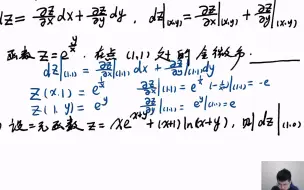 dz = ∂z/∂x dx + ∂z/∂y dy, dz|(x,y) = ∂z/∂x|(x,y) + ∂z/∂y|(x,y)
函数 z = e^(y/x) 在点 (1,1) 处的全微分为 ____
dz|(1,1) = ∂z/∂x|(1,1) dx + ∂z/∂y|(1,1) dy
z(x,1) = e^(1/x) ∂z/∂x|(1,1) = e^(1/x)(-1/x²)|(1,1) = -e
z(1,y) = e^y ∂z/∂y|(1,1) = e^y|(1,1) = e
设二元函数 z = xe^(x+y) + (x+1)ln(x+y), 则 dz|(1,0)